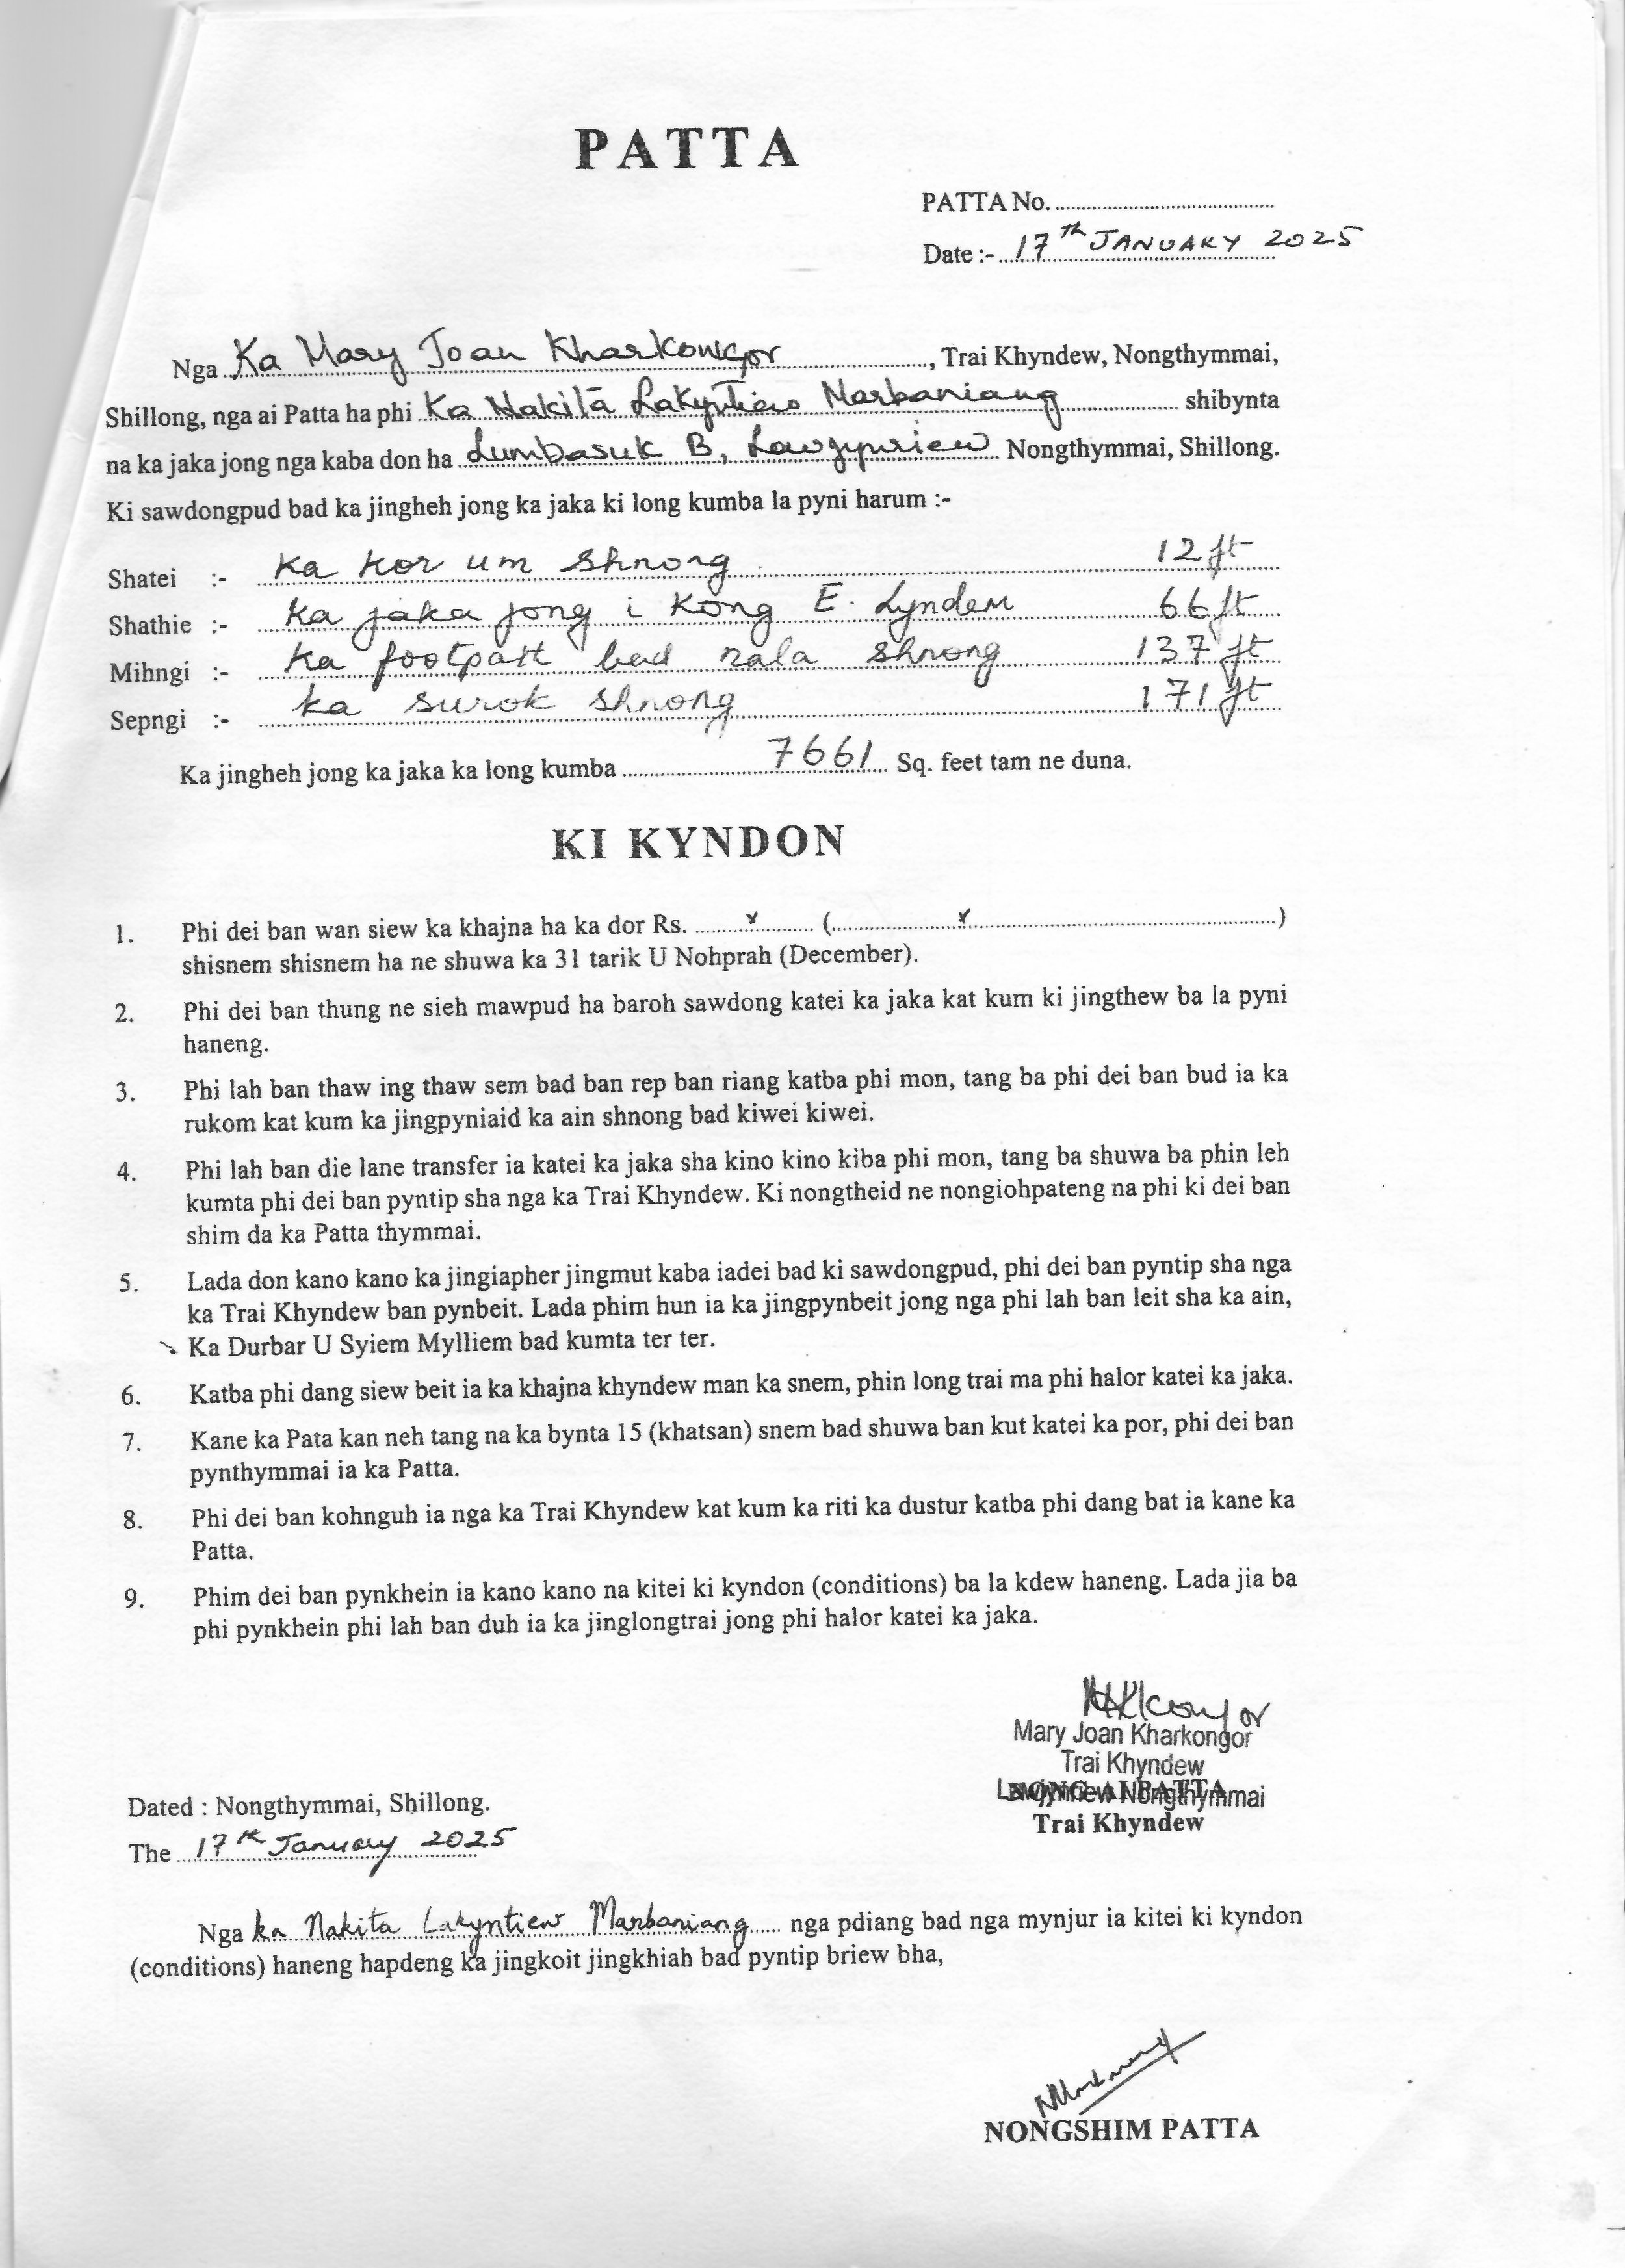 PATTA
PATTA No. ..........................................
Date :- 17th JANUARY 2025
Nga Ka Mary Joan Kharkongor, Trai Khyndew, Nongthymmai,
Shillong, nga ai Patta ha phi Ka Nakita Lakyntiew Marbaniang shibynta
na ka jaka jong nga kaba don ha Lumbasuk B, Lawjynriew Nongthymmai, Shillong.
Ki sawdongpud bad ka jingheh jong ka jaka ki long kumba la pyni harum :-
Shatei :- Ka kor um shnong 12 ft
Shathie :- Ka jaka jong i Kong E. Lyndem 66 ft
Mihngi :- Ka footpath bad nala shnong 137 ft
Sepngi :- ka surok shnong 171 ft
Ka jingheh jong ka jaka ka long kumba 7661 Sq. feet tam ne duna.
KI KYNDON
1. Phi dei ban wan siew ka khajna ha ka dor Rs. ......x...... (......x......)
shisnem shisnem ha ne shuwa ka 31 tarik U Nohprah (December).
2. Phi dei ban thung ne sieh mawpud ha baroh sawdong katei ka jaka kat kum ki jingthew ba la pyni
haneng.
3. Phi lah ban thaw ing thaw sem bad ban rep ban riang katba phi mon, tang ba phi dei ban bud ia ka
rukom kat kum ka jingpyniaid ka ain shnong bad kiwei kiwei.
4. Phi lah ban die lane transfer ia katei ka jaka sha kino kino kiba phi mon, tang ba shuwa ba phin leh
kumta phi dei ban pyntip sha nga ka Trai Khyndew. Ki nongtheid ne nongiohpateng na phi ki dei ban
shim da ka Patta thymmai.
5. Lada don kano kano ka jingiapher jingmut kaba iadei bad ki sawdongpud, phi dei ban pyntip sha nga
ka Trai Khyndew ban pynbeit. Lada phim hun ia ka jingpynbeit jong nga phi lah ban leit sha ka ain,
Ka Durbar U Syiem Mylliem bad kumta ter ter.
6. Katba phi dang siew beit ia ka khajna khyndew man ka snem, phin long trai ma phi halor katei ka jaka.
7. Kane ka Pata kan neh tang na ka bynta 15 (khatsan) snem bad shuwa ban kut katei ka por, phi dei ban
pynthymmai ia ka Patta.
8. Phi dei ban kohnguh ia nga ka Trai Khyndew kat kum ka riti ka dustur katba phi dang bat ia kane ka
Patta.
9. Phim dei ban pynkhein ia kano kano na kitei ki kyndon (conditions) ba la kdew haneng. Lada jia ba
phi pynkhein phi lah ban duh ia ka jinglongtrai jong phi halor katei ka jaka.
Mary Joan Kharkongor
Trai Khyndew
Lawjynriew Nongthymmai
NONG AI PATTA
Trai Khyndew
Dated : Nongthymmai, Shillong.
The 17th January 2025
Nga ka Nakita Lakyntiew Marbaniang nga pdiang bad nga mynjur ia kitei ki kyndon
(conditions) haneng hapdeng ka jingkoit jingkhiah bad pyntip briew bha,
NONGSHIM PATTA